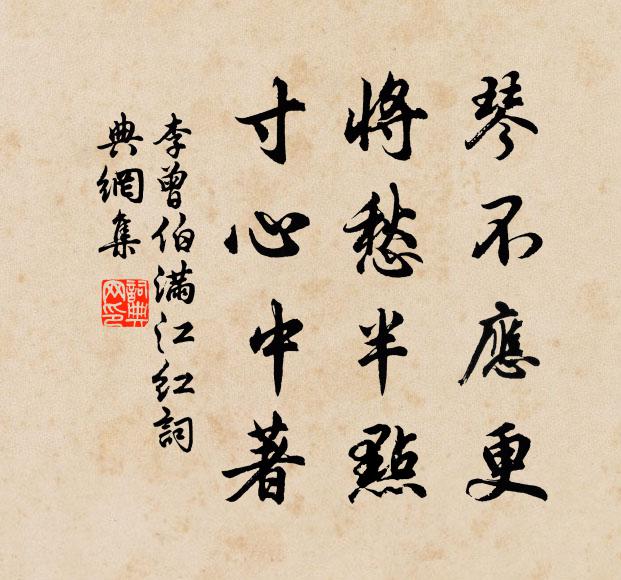 琴不應更
將愁半點
寸心中著
李曾伯滿江紅詞
典網集
詞典
网印